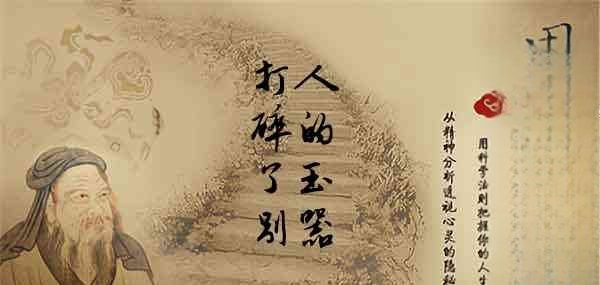 打碎了别
人的玉器
从精神分析透视心灵的隐秘
用科学法则把握你的人生